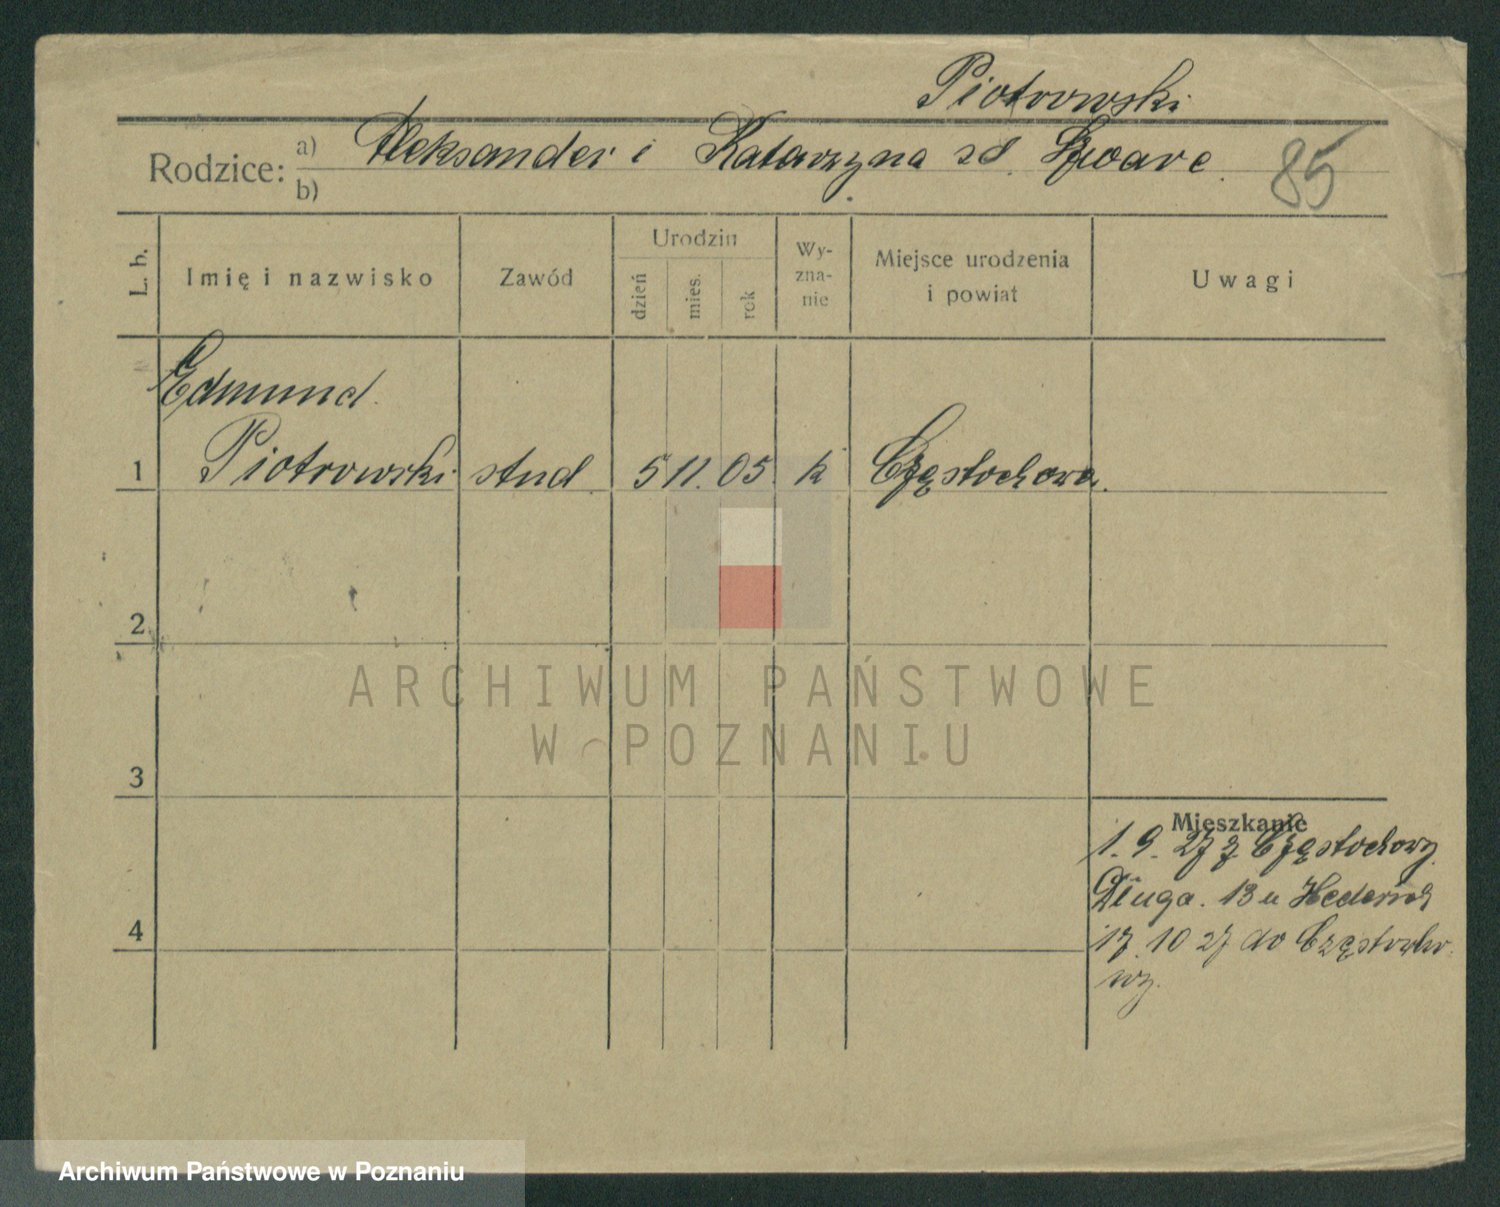 Piotrowski
Rodzice: a) Aleksander i Katarzyna zd. Szwarc.
b)
85
L. b.
Imię i nazwisko
Zawód
Urodzin
dzień
mies.
rok
Wy-
zna-
nie
Miejsce urodzenia
i powiat
Uwagi
Edmund
1 Piotrowski stud 5 11. 05. k Częstochowa.
2
ARCHIWUM PAŃSTWOWE
W POZNANIU
3
Mieszkanie
1. 9. 27 z Częstochowy.
Długa. 13 u
4
17. 10 27 do Częstocho-
wy.
Archiwum Państwowe w Poznaniu